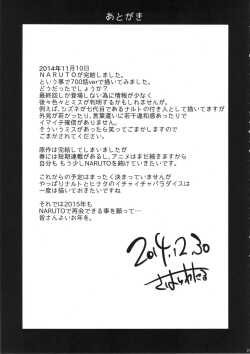 あとがき
2014年11月10日
ＮＡＲＵＴＯが完結しました。
という事で700話verで描いてみました。
どうだったでしょうか？
最終回しか登場しない為に情報が少なく
後々色々とミスが判明するかもしれませんが。
例えば、シズネが七代目であるナルトの付き人として描いてますが
外見が若かったり、言葉遣いに若干違和感あったりで
イマイチ確信がありません。
そういうミスがあったら笑ってごまかしますので
ごまかされてください。
原作は完結してしまいましたが
春には短期連載があるし、アニメはまだ続きますから
自分も もう少しNARUTOを続けていきたいです。
これからの予定はまったく決まっていませんが
やっぱりナルトとヒナタのイチャイチャパラダイスは
一度は描いておきたいですね
それでは2015年も
NARUTOで再会できる事を願って…
皆さんよいお年を。
2014.12.30